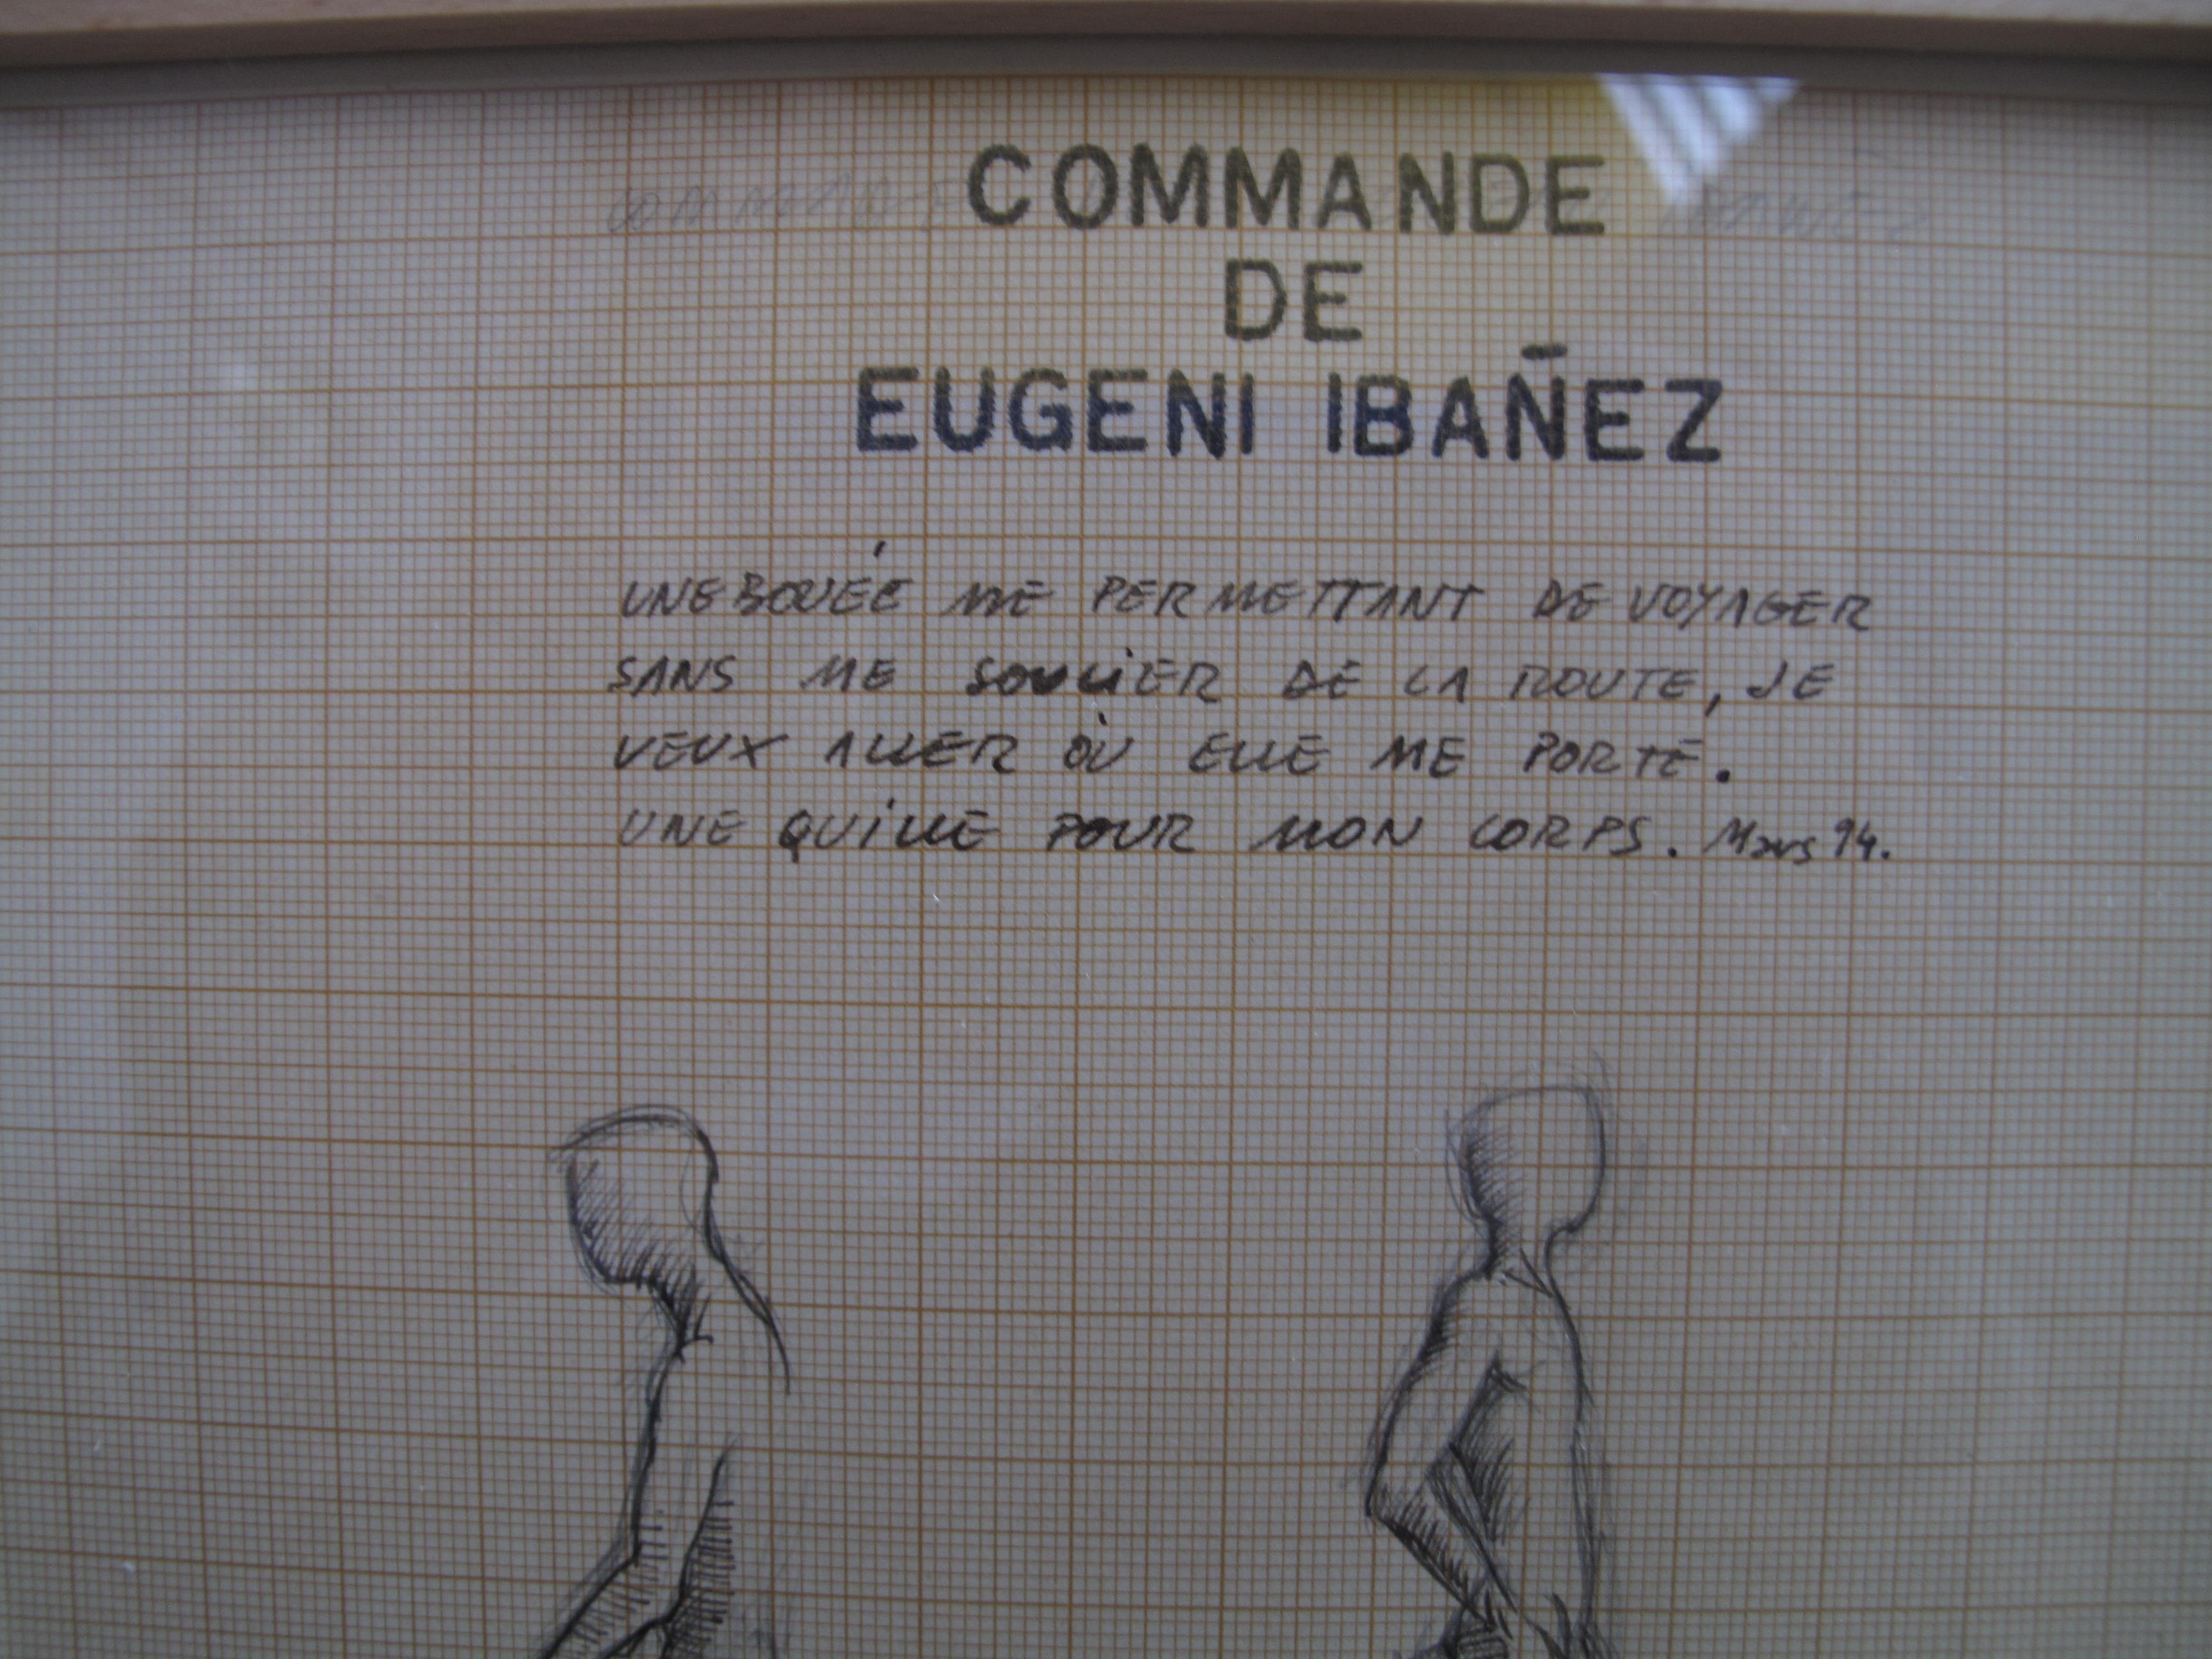 COMMANDE
DE
EUGENI IBAÑEZ
UNE BOUÉE ME PERMETTANT DE VOYAGER
SANS ME SOUCIER DE LA ROUTE, JE
VEUX ALLER OÙ ELLE ME PORTE.
UNE QUILLE POUR MON CORPS. Mars 94.